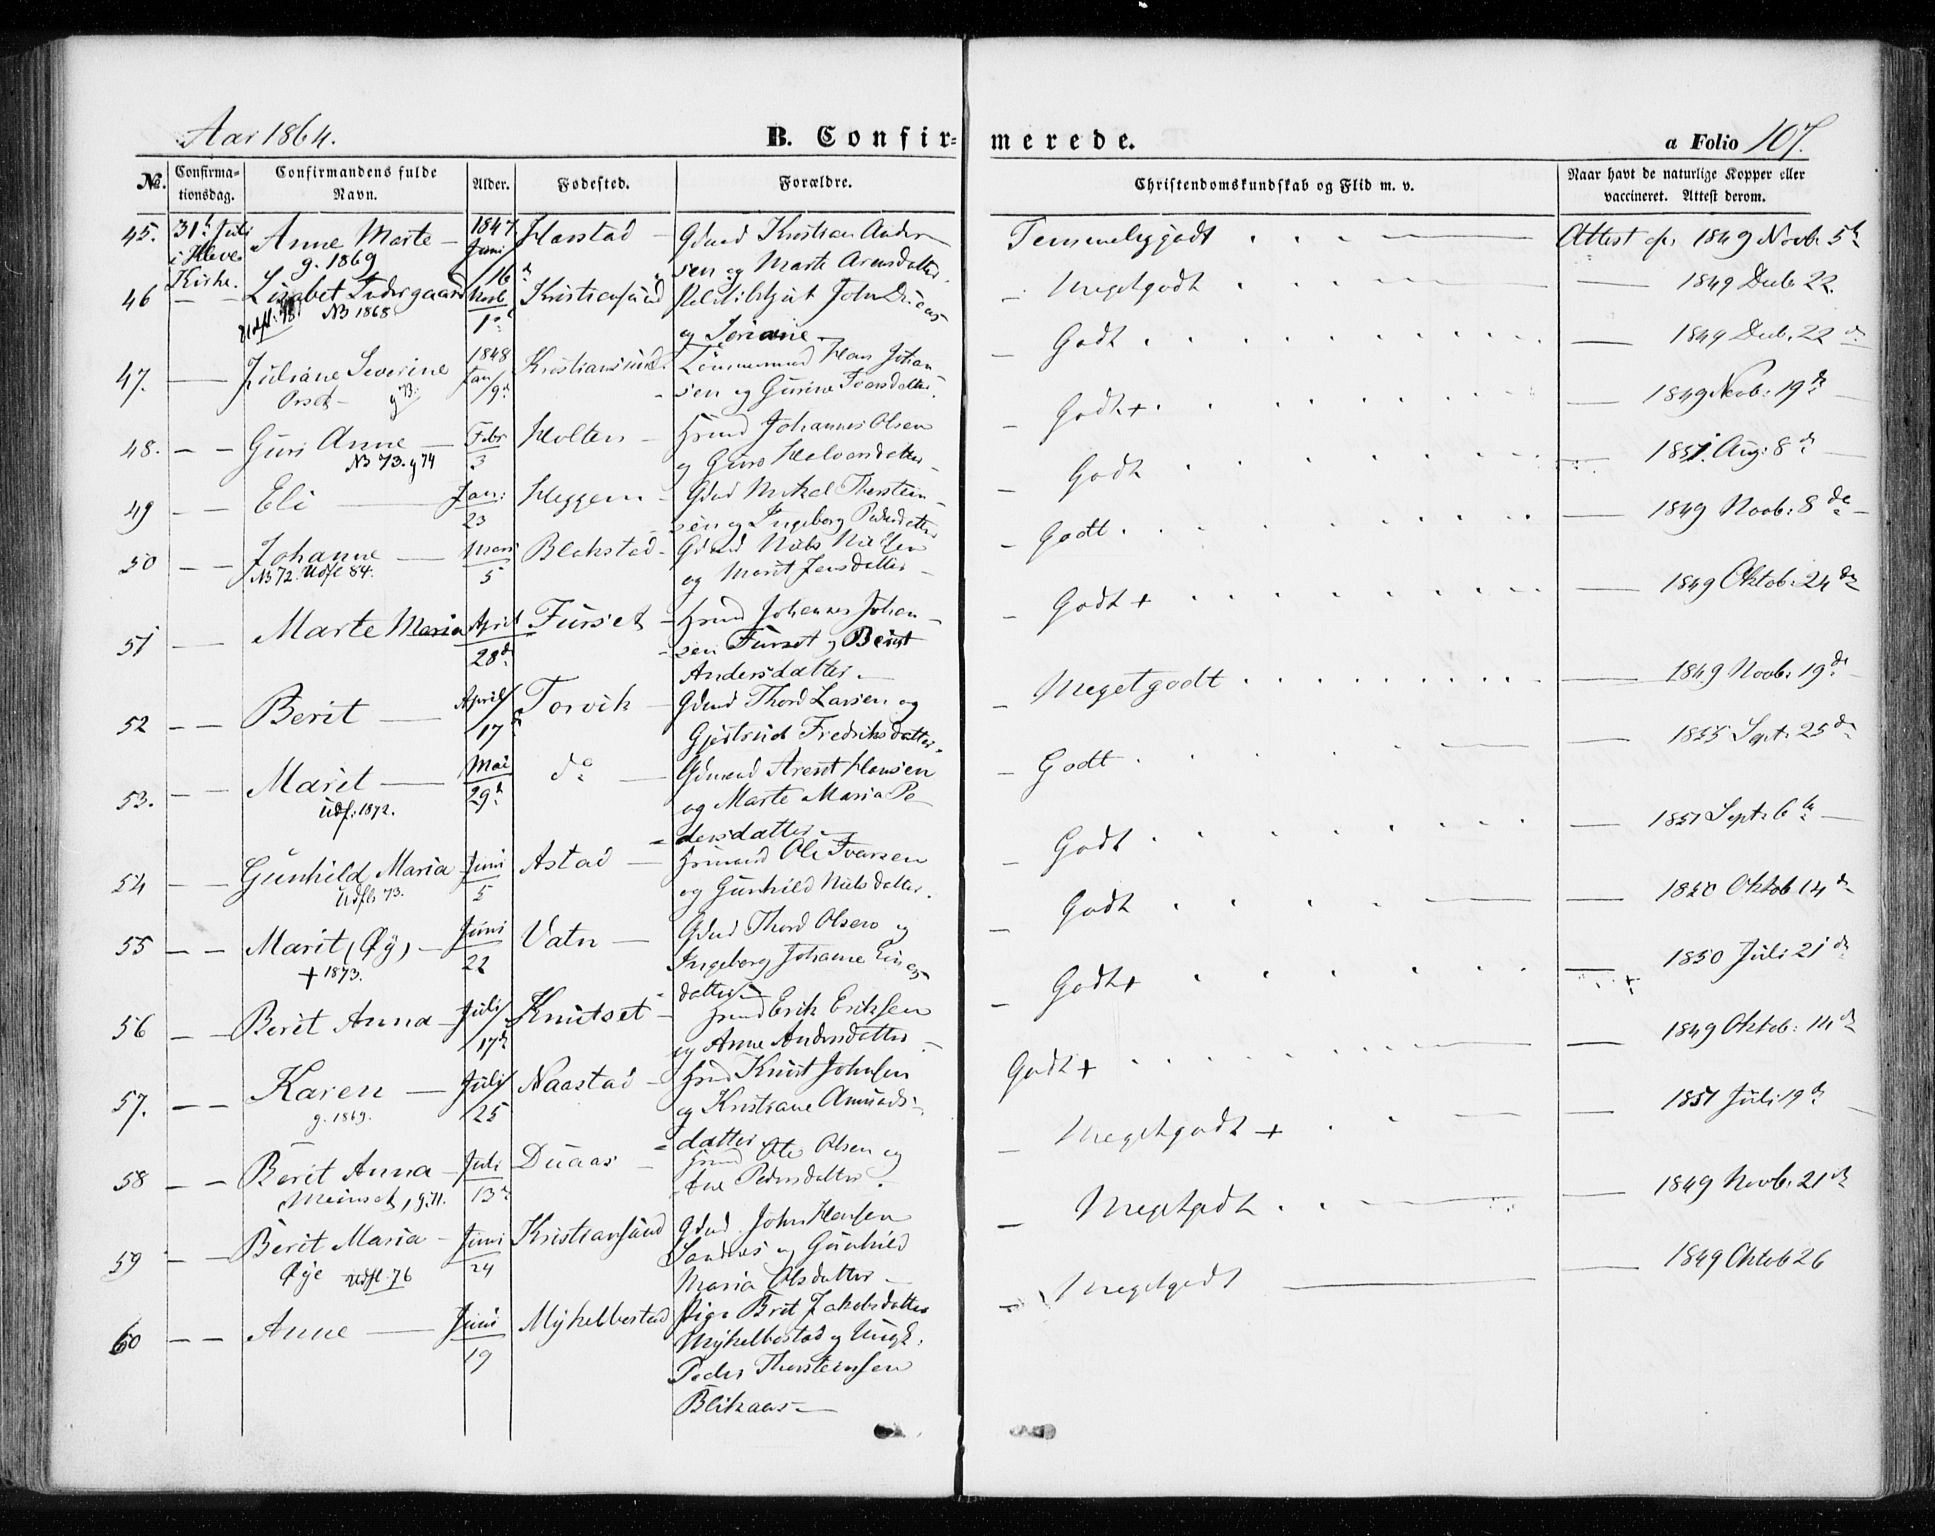 Aar 1864.
B. Confirmerede.
a Folio 107.
No.
Confirmationsdag.
Confirmandens fulde Navn.
Alder.
Fødested.
Forældre.
Christendomskundskab og Flid m. v.
Naar havt de naturlige Kopper eller vaccineret. Attest derom.
45. 31te Juli i Kleve Kirke. Anne Marte — 1847 Juni 16 Harstad — Gdmd Kristian Ander-
g. 1869
sen og Marte Arnsdatter. Temmeliggodt Attest af 1849 Novb. 5te
46 — — Lisabet Indergaard Novb 1ste Kristiansund Politibetjent John
NB 1868
og — Megetgodt — 1849 Decb. 22.
47. — Juliane Severine 1848 Jan/9de Kristiansund. Tømmermand Hans Johan
Orset — g 73.
sen og Gurine Iversdatter. — Godt — 1849 Decb. 22de
48. — — Guri Anne — Febr 3 Holten — Hmd Johannes Olsen
NB 73. g 74
og Guro Halvorsdatter — — Godt+ — 1849 Novb. 19de
49 — — Eli — Jan: 23 Heggem — Gdmd Mikkel Thorstein-
sen og Ingeborg Pedersdatter — Godt — 1851. Aug: 8de
50 — — Johanne — Mars 5 Blekstad — Gdmd Niels Nielsen
NB 72. Udfl 84.
og Marit Jensdatter — — Godt — 1849 Novb: 8de
51 — Marte Maria April 28de Furset — Hmd Johannes Johan-
sen Furset og Berit
Andersdatter — — Godt + 1849 Oktob. 24de
52 — — Berit — April/17de Torvik — Gdmd Thord Larsen og
Gjertrud Fredriksdatter. — Megetgodt — 1849 Novb: 19de
53. — — Marit — Mai 29de do — Gdmand Arent Hansen
Udf: 1872.
og Marte Maria Pe-
dersdatter — — Godt — 1855 Sept. 25de
54 — — Gunhild Maria Juni 5 Astad — Husmand Ole Iversen
Udfl. 73.
og Gunhild Nielsdatter. — Godt — 1851 Sept. 6te
55 — — Marit (Øy) — Juni 22 Vatn — Gdmd Thord Olsen og
+ 1873.
Ingeborg Johanne
datter — — Godt — 1850 Oktob 14de
56 — — Berit Anna — Juli/17de Knutset — Hmd Erik Eriksen
og Anne Andersdatter — — Godt+ — 1850 Juli 21de
57. — — Karen — Juli/25 Naastad — Hmd Knut Johnsen
g. 1869.
og Kristiane Amunds-
datter Godt + — 1849 Oktob: 14de
58 — — Berit Anna — Juli 13de Duaas — Hmd Ole Olsen og
Meinset, g. 71.
Ane Pedersdatter. — Megetgodt + 1851 Juli 19de
59 — — Berit Maria — Juni 24 Kristiansund Gdmd John Hansen
Øye Udfl. 76
Sandnes og Gunhild
Maria Olsdatter — — Megetgodt — 1849 Novb. 21de
60 — — Anne — Juni 19 Myhelbostad Pige Brit Jakobsdatter
Myhelbostad og Ungk.
Peder Thorsteinsen
Blikaas — — Megetgodt — 1849 Oktob 26